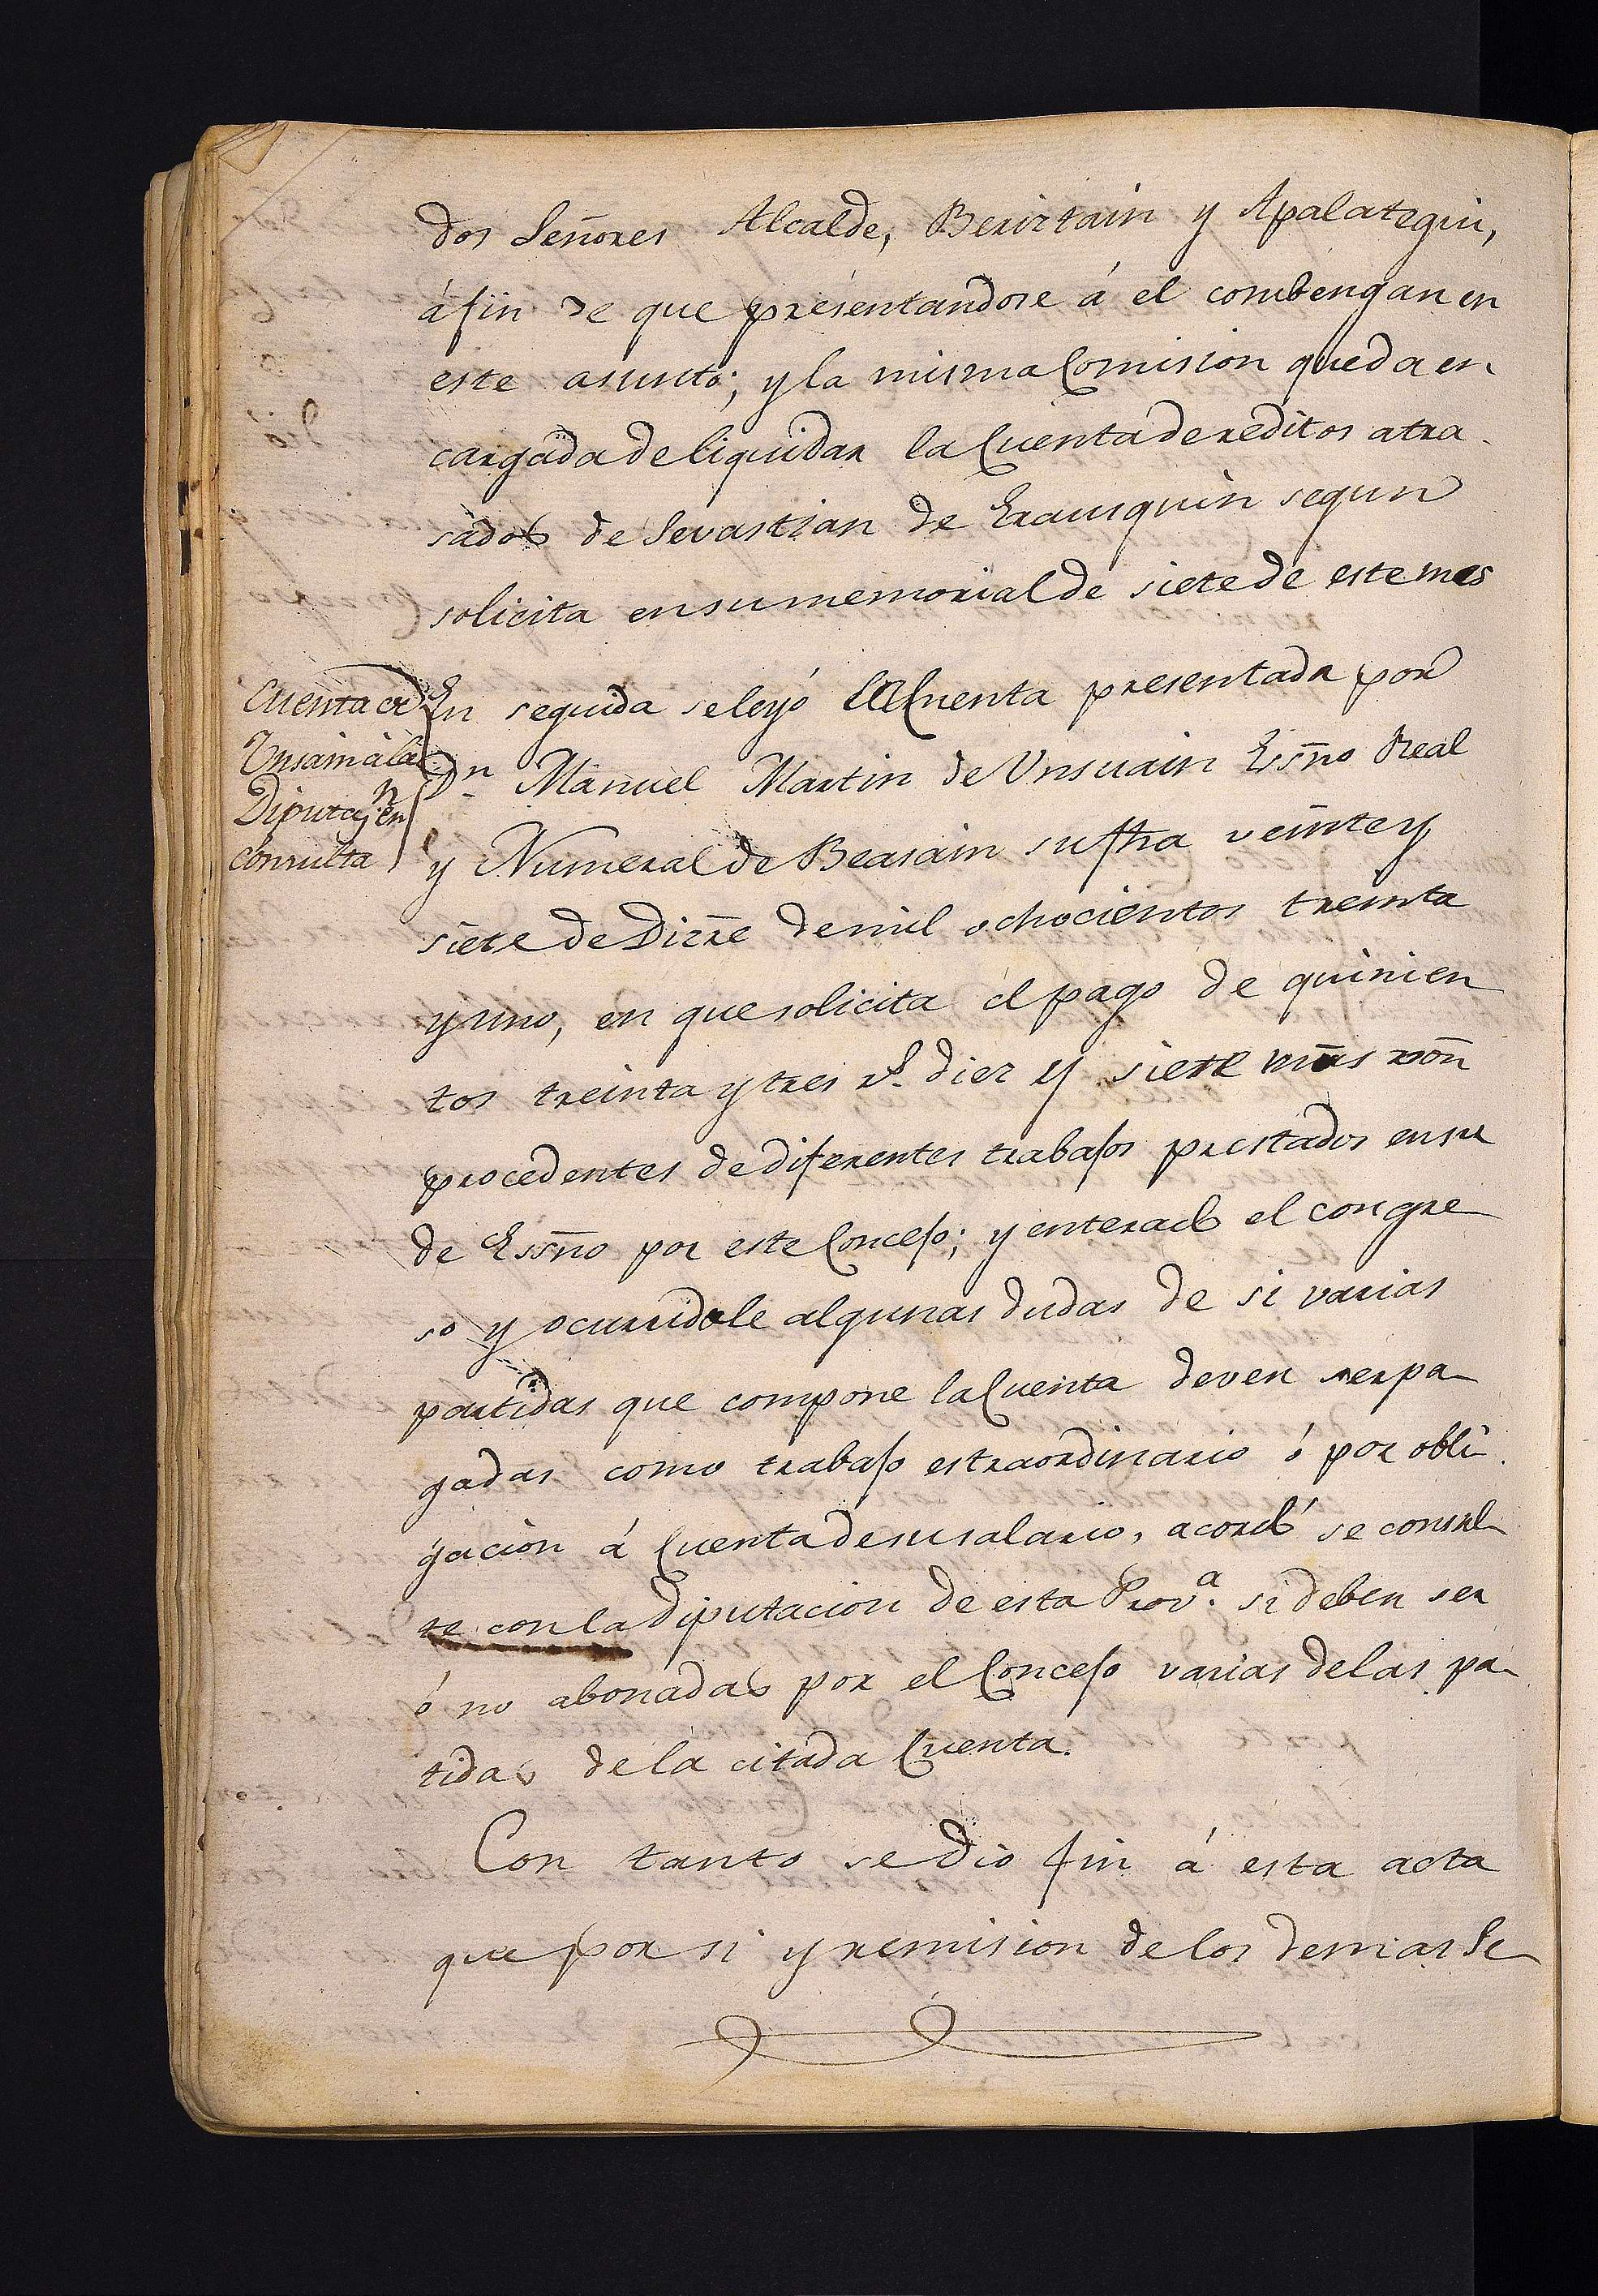 dos Señores Alcalde, Beristain y Apalategui,
áfin de que presentandose á el combengan en
este asunto; y la misma Comision queda en
cargada de liquidar la Cuenta de reditos atra-
sados de Sevastian de Erausquin segun
solicita en su memorial de siete de este mes
Cuenta de
Unsain a la
Diputan. en
consulta
En seguida se leyó la Cuenta presentada por
Dn. Manuel Martin de Unsuain Essño Real
y Numeral de Beasain su fha veinte y
siete de Dizre de mil ochocientos treinta
y uno, en que solicita el pago de quinien
tos treinta y tres rs. diez y siete mrãs von
procedentes de diferentes trabajos prestados en su
de Essño por este Concejo; y enterado el congre
so y ocurridole algunas dudas de si varias
partidas que compone la Cuenta deven ser pa-
gadas como trabajo estraordinario ó por obli-
gacion á Cuenta de su salario, acordó se consul-
te con la Diputacion de esta Prova. si deben ser
ó no abonadas por el Concejo varias de las pa-
tidas de la citada Cuenta.
Con tanto se dio fin á esta acta
que por si y remision de los demas Se-